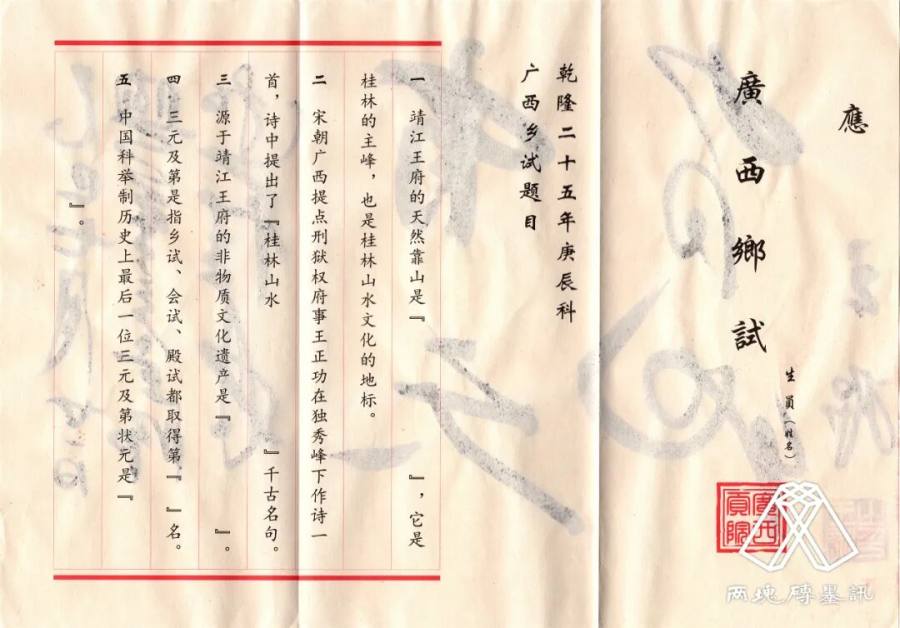 應
廣西鄉試
生員（姓名）
廣西貢院
乾隆二十五年庚辰科
广西乡试题目
一 靖江王府的天然靠山是『 』，它是
桂林的主峰，也是桂林山水文化的地标。
二 宋朝广西提点刑狱权府事王正功在独秀峰下作诗一
首，诗中提出了『桂林山水 』千古名句。
三 源于靖江王府的非物质文化遗产是『 』。
四 三元及第是指乡试、会试、殿试都取得第『 』名。
五 中国科举制历史上最后一位三元及第状元是『
』。
两塊磚墨訊